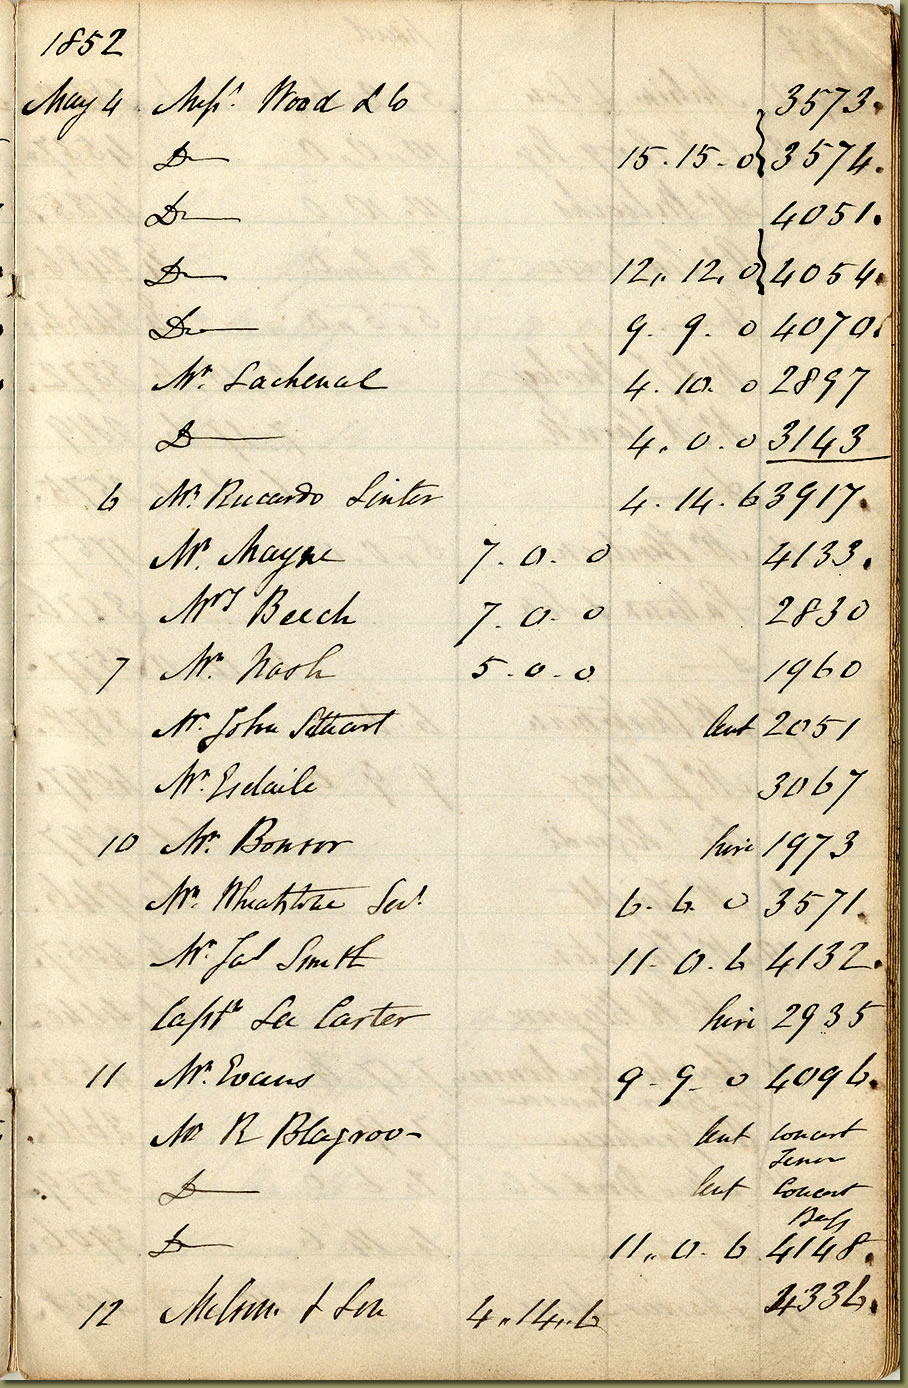 1852
May 4 Messrs. Wood & Co 3573.
Do 15.15.0 3574.
Do 4051.
Do 12.12.0 4054.
Do 9.9.0 4070.
Mr. Lachenal 4.10.0 2897
Do 4.0.0 3143
6 Mr. Riccardo Linter 4.14.6 3917.
Mr. Mayne 7.0.0 4133.
Mrs Beech 7.0.0 2830
7 Mr. Nash 5.0.0 1960
Mr. John Stuart lent 2051
Mr. Esdaile 3067
10 Mr. Bonsor hire 1973
Mr. Wheatstone Senr. 6.6.0 3571.
Mr. Jas Smith 11.0.6 4132.
Captn Carter hire 2935
11 Mr. Evans 9.9.0 4096.
Mr R Blagrove lent Concert
Tenor
Do lent Concert
Bass
Do 11.0.6 4148.
12 & Son 4.14.6